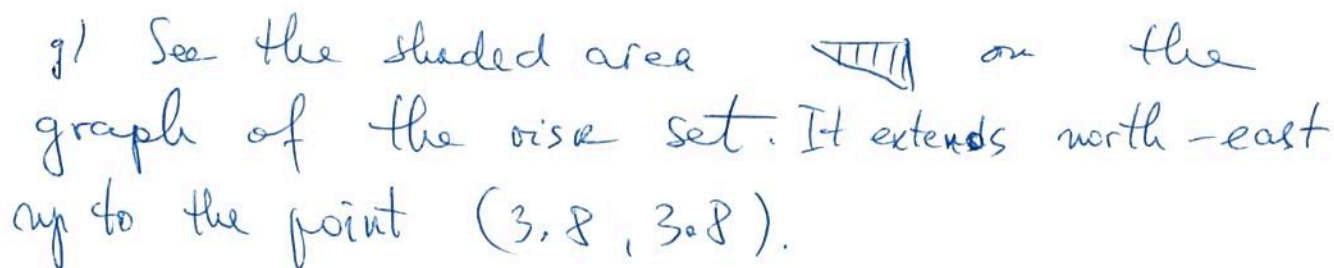 g) See the shaded area on the
graph of the risk set. It extends north-east
up to the point (3.8, 3.8).